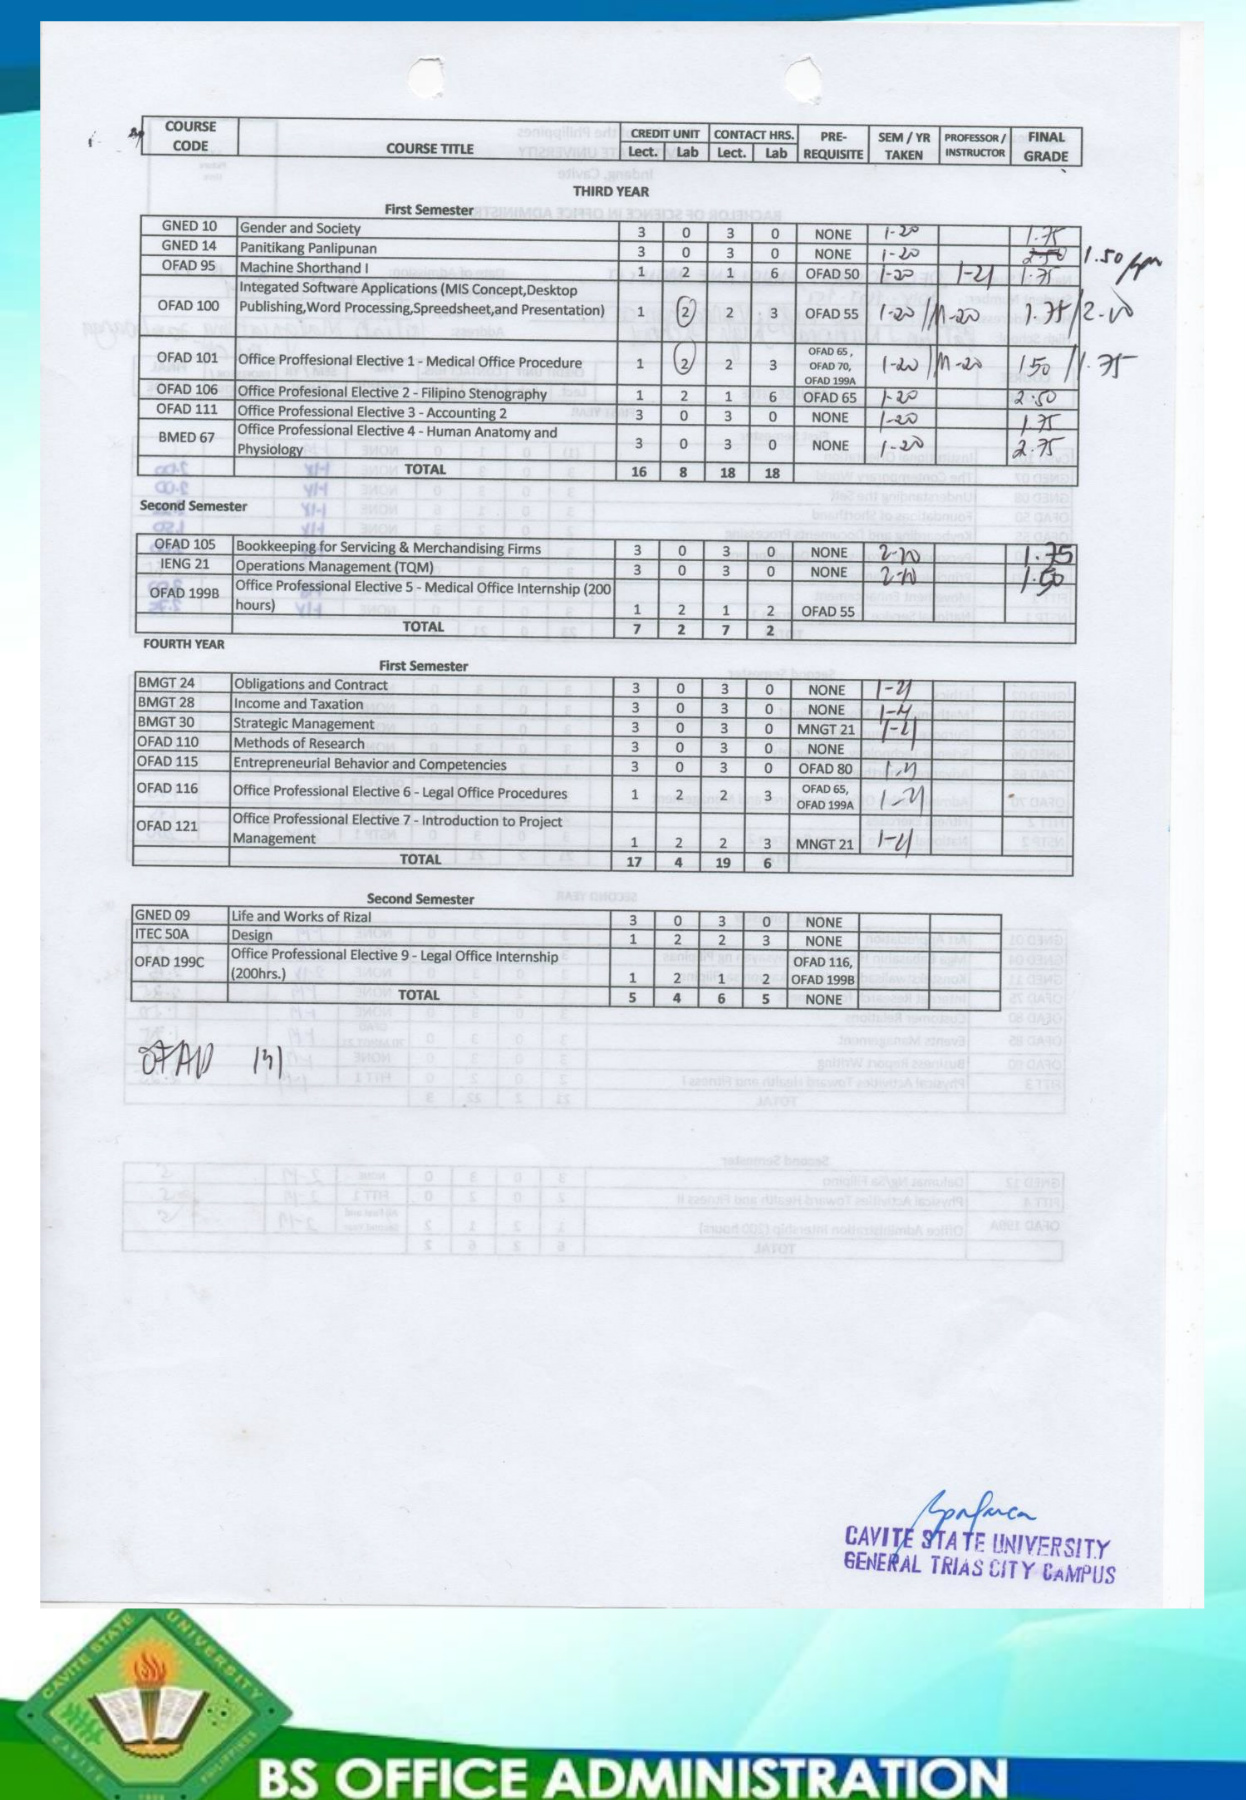 COURSE CODE COURSE TITLE CREDIT UNIT CONTACT HRS. PRE-REQUISITE SEM / YR TAKEN PROFESSOR / INSTRUCTOR FINAL GRADE
Lect. Lab Lect. Lab
THIRD YEAR
First Semester
GNED 10 Gender and Society 3 0 3 0 NONE 1-20 1.75
GNED 14 Panitikang Panlipunan 3 0 3 0 NONE 1-20 2.50 1.50
OFAD 95 Machine Shorthand I 1 2 1 6 OFAD 50 1-20 1-21 1.75
OFAD 100 Integated Software Applications (MIS Concept,Desktop
Publishing,Word Processing,Spreedsheet,and Presentation) 1 2 2 3 OFAD 55 1-20/M-20 1.75/2.00
OFAD 101 Office Proffesional Elective 1 - Medical Office Procedure 1 2 2 3 OFAD 65, OFAD 70, OFAD 199A 1-20/M-20 1.50/1.75
OFAD 106 Office Profesional Elective 2 - Filipino Stenography 1 2 1 6 OFAD 65 1-20 2.50
OFAD 111 Office Professional Elective 3 - Accounting 2 3 0 3 0 NONE 1-20 1.75
BMED 67 Office Professional Elective 4 - Human Anatomy and
Physiology 3 0 3 0 NONE 1-20 2.75
TOTAL 16 8 18 18
Second Semester
OFAD 105 Bookkeeping for Servicing & Merchandising Firms 3 0 3 0 NONE 2-20 1.75
IENG 21 Operations Management (TQM) 3 0 3 0 NONE 2-20 1.50
OFAD 199B Office Professional Elective 5 - Medical Office Internship (200
hours) 1 2 1 2 OFAD 55
TOTAL 7 2 7 2
FOURTH YEAR
First Semester
BMGT 24 Obligations and Contract 3 0 3 0 NONE 1-21
BMGT 28 Income and Taxation 3 0 3 0 NONE 1-21
BMGT 30 Strategic Management 3 0 3 0 MNGT 21 1-21
OFAD 110 Methods of Research 3 0 3 0 NONE
OFAD 115 Entrepreneurial Behavior and Competencies 3 0 3 0 OFAD 80 1-21
OFAD 116 Office Professional Elective 6 - Legal Office Procedures 1 2 2 3 OFAD 65, OFAD 199A 1-21
OFAD 121 Office Professional Elective 7 - Introduction to Project
Management 1 2 2 3 MNGT 21 1-21
TOTAL 17 4 19 6
Second Semester
GNED 09 Life and Works of Rizal 3 0 3 0 NONE
ITEC 50A Design 1 2 2 3 NONE
OFAD 199C Office Professional Elective 9 - Legal Office Internship
(200hrs.) 1 2 1 2 OFAD 116, OFAD 199B
TOTAL 5 4 6 5 NONE
OFAD 131
CAVITE STATE UNIVERSITY
GENERAL TRIAS CITY CAMPUS
CAVITE STATE UNIVERSITY
CAVITE PHILIPPINES
BS OFFICE ADMINISTRATION